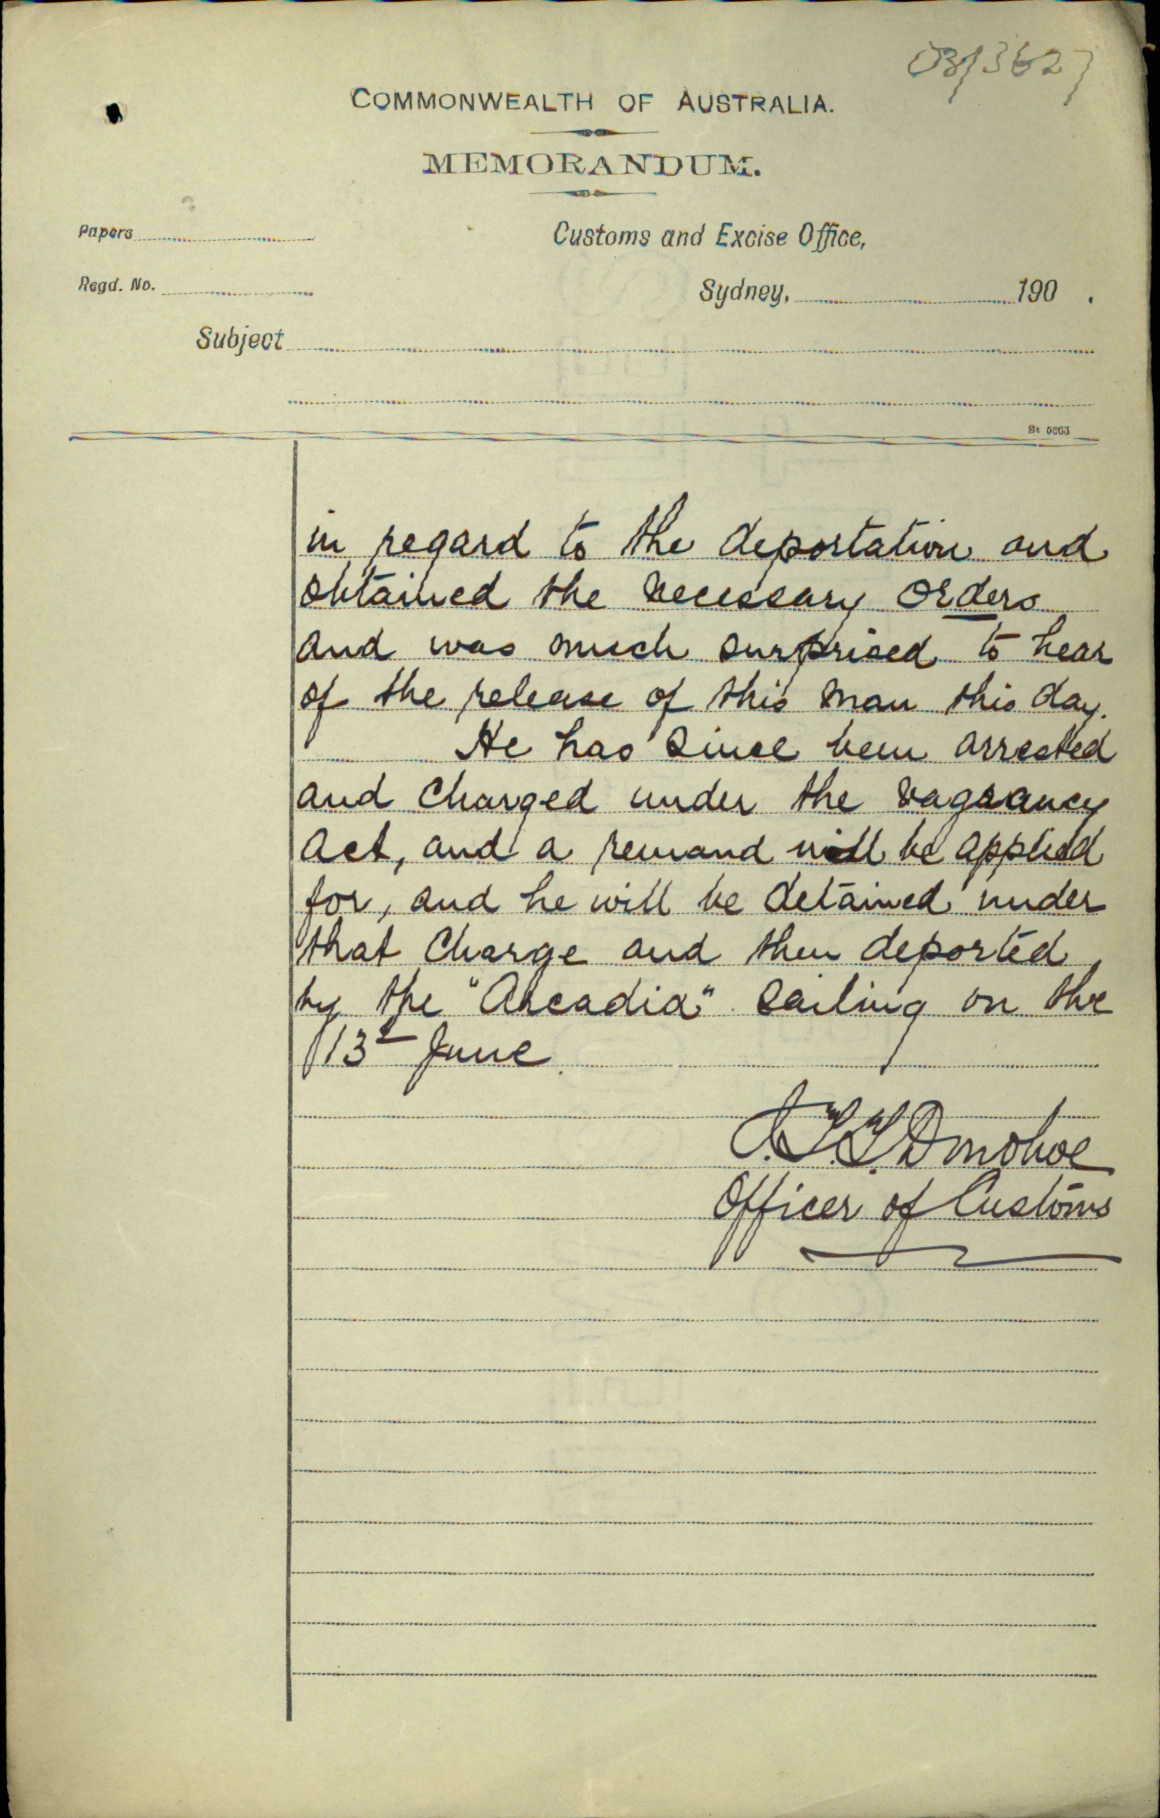 03/3627
COMMONWEALTH OF AUSTRALIA.
MEMORANDUM.
Papers
Customs and Excise Office,
Regd. No.
Sydney, 190 .
Subject
St 5663
in regard to the deportation and
obtained the necessary orders
and was much surprised to hear
of the release of this man this day.
He has since been arrested
and charged under the vagrancy
act, and a remand will be applied
for, and he will be detained under
that charge and then deported
by the "Arcadia" sailing on the
13th June
Donohoe
Officer of Customs